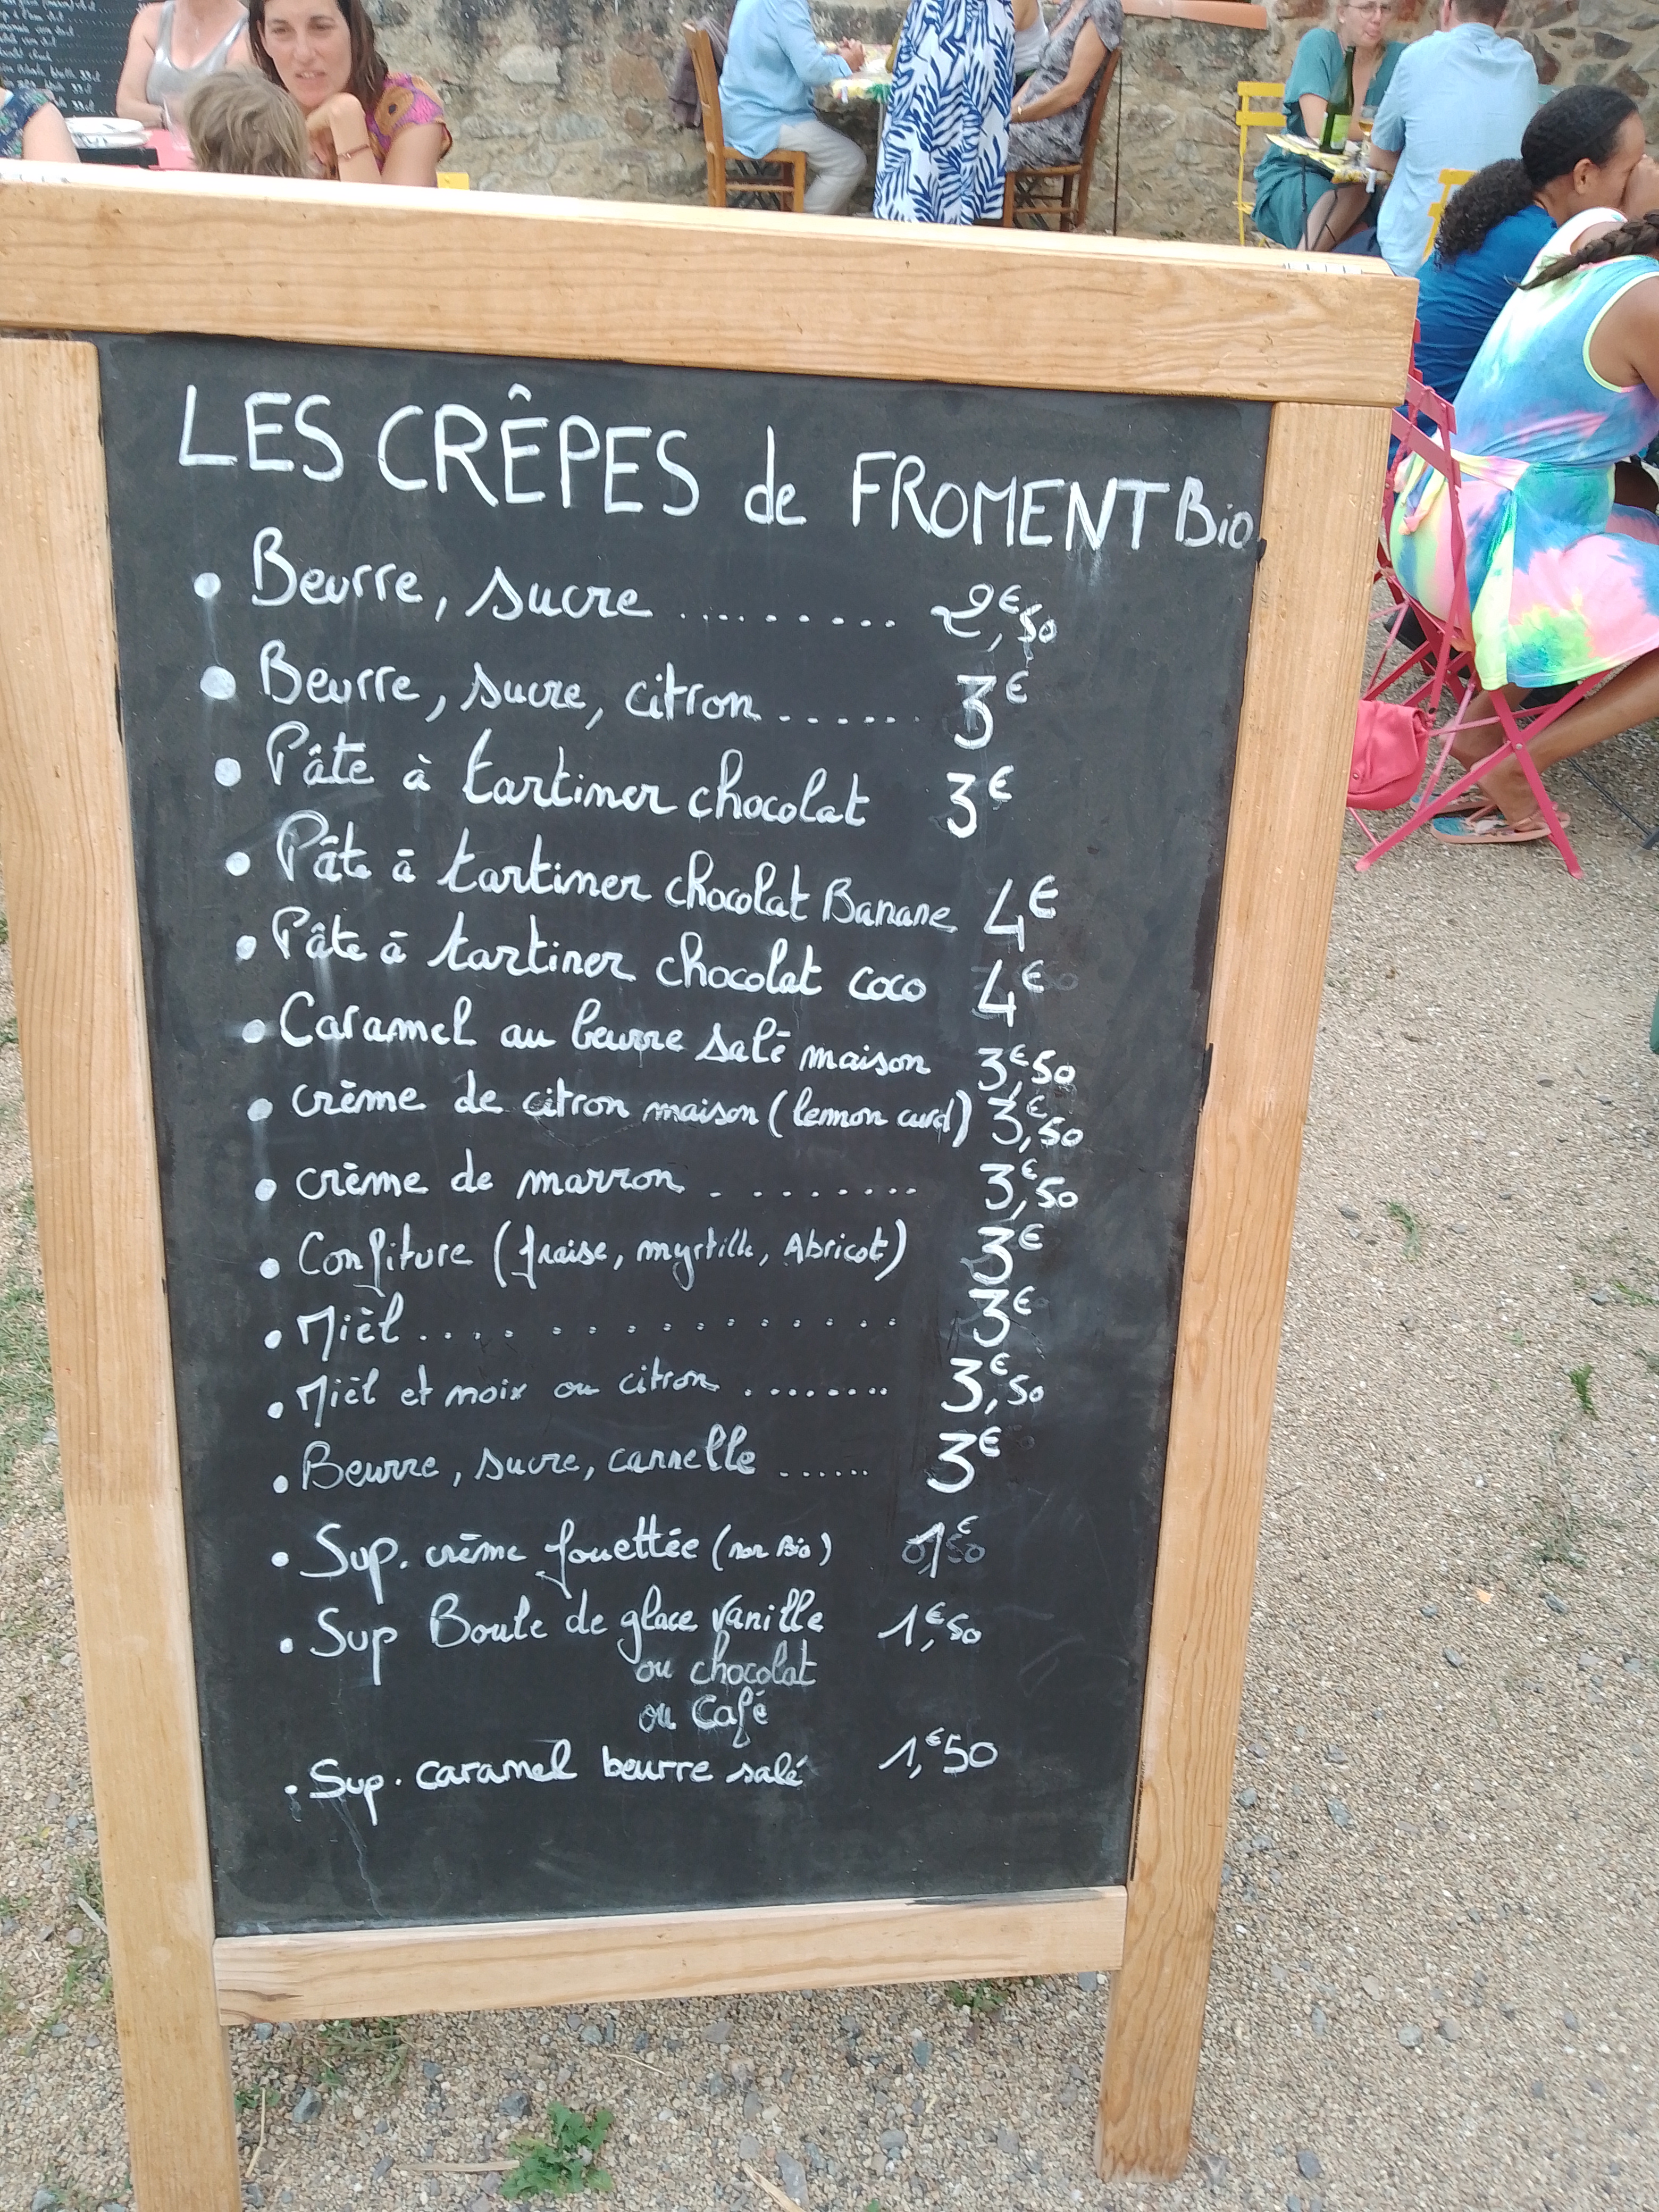 LES CRÊPES de FROMENT Bio
• Beurre, sucre ......... 2,€50
• Beurre, sucre, citron ....... 3€
• Pâte à tartiner chocolat 3€
• Pâte à tartiner chocolat Banane 4€
• Pâte à tartiner chocolat coco 4€
• Caramel au beurre salé maison 3,€50
• crème de citron maison (lemon curd) 3,€50
• crème de marron . ........ 3,€50
• Confiture (fraise, myrtille, Abricot) 3€
• Mièl .................. 3€
• Mièl et noix ou citron ........ 3,€50
• Beurre, sucre, cannelle ...... 3€
• Sup. crème fouettée (non Bio) 1€
• Sup Boule de glace vanille 1,€50
ou chocolat
ou Café
• Sup. caramel beurre salé 1,€50